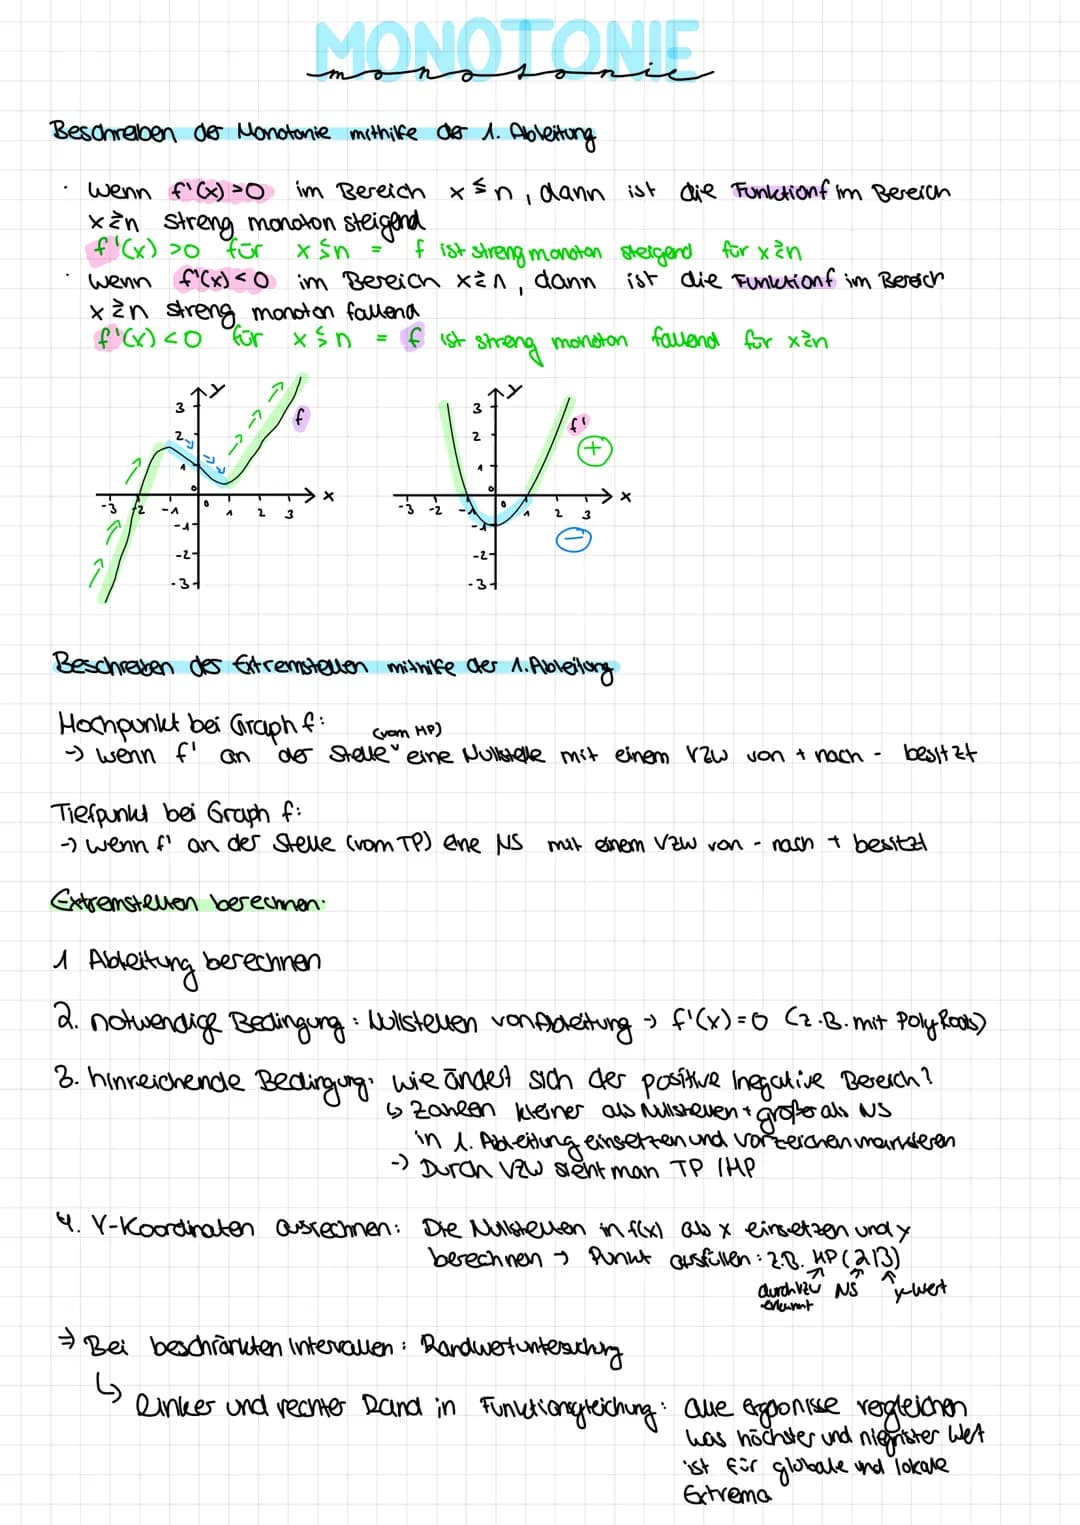 MONOTONIE
monotonie
Beschreiben der Monotonie mithilfe der 1. Ableitung
· Wenn f'(x) >0 im Bereich x ≦ n, dann ist die Funktion f im Bereich
x ≧ n streng monoton steigend
f'(x) >0 für x ≦ n = f ist streng monoton steigend für x ≧ n
· Wenn f'(x) < 0 im Bereich x ≧ n, dann ist die Funktion f im Bereich
x ≧ n streng monoton fallend
f'(x) < 0 für x ≦ n = f ist streng monoton fallend für x ≧ n
y
3
2
1
0
-3 -2 -1 0 1 2 3 x
-1
-2
-3
f
y
3
2
1
0
-3 -2 -1 0 1 2 3 x
-1
-2
-3
f'
+
−
Beschreiben der Extremstellen mithilfe der 1. Ableitung
Hochpunkt bei Graph f:
(vom HP)
-> wenn f' an der Stelle eine Nullstelle mit einem VZW von + nach - besitzt
Tiefpunkt bei Graph f:
-> wenn f' an der Stelle (vom TP) eine NS mit einem VZW von - nach + besitzt
Extremstellen berechnen:
1 Ableitung berechnen
2. notwendige Bedingung: Nullstellen von Ableitung → f'(x)=0 (z.B. mit PolyRoots)
3. hinreichende Bedingung: wie ändert sich der positive/negative Bereich?
↳ Zahlen kleiner als Nullstellen + größer als NS
in 1. Ableitung einsetzen und Vorzeichen markieren
-> Durch VZW sieht man TP/HP
4. Y-Koordinaten ausrechnen: Die Nullstellen in f(x) als x einsetzen und y
berechnen → Punkt ausfüllen: z.B. HP(2|3)
durch VZW NS y-Wert
erkannt
⇒ Bei beschränkten Intervallen: Randwertuntersuchung
↳ Linker und rechter Rand in Funktionsgleichung: alle Ergebnisse vergleichen
was höchster und niedrigster Wert
ist für globale und lokale
Extrema